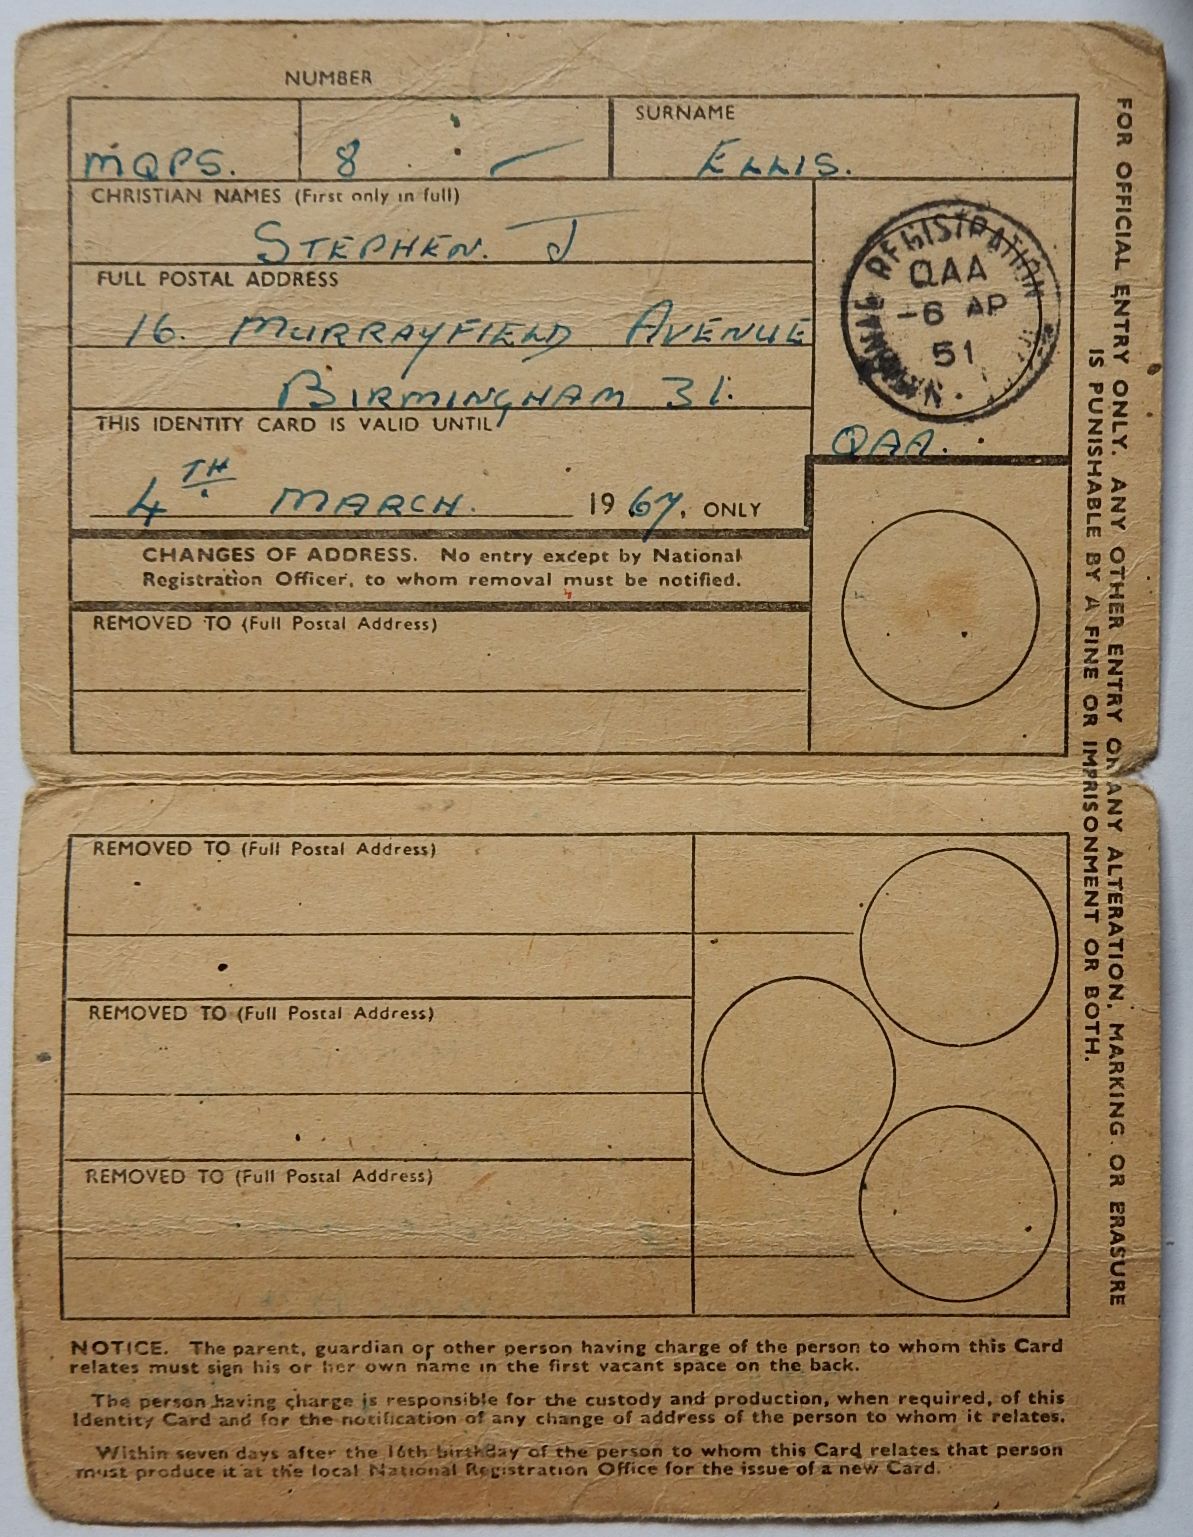 NUMBER
MQPS. 8 –
SURNAME
ELLIS.
CHRISTIAN NAMES (First only in full)
STEPHEN. J
FULL POSTAL ADDRESS
16. MURRAYFIELD AVENUE
BIRMINGHAM 31.
THIS IDENTITY CARD IS VALID UNTIL
4TH MARCH. 1967, ONLY
NATIONAL REGISTRATION
QAA
-6 AP
51
QAA.
CHANGES OF ADDRESS. No entry except by National
Registration Officer, to whom removal must be notified.
REMOVED TO (Full Postal Address)
REMOVED TO (Full Postal Address)
REMOVED TO (Full Postal Address)
REMOVED TO (Full Postal Address)
NOTICE. The parent, guardian or other person having charge of the person to whom this Card
relates must sign his or her own name in the first vacant space on the back.
The person having charge is responsible for the custody and production, when required, of this
Identity Card and for the notification of any change of address of the person to whom it relates.
Within seven days after the 16th birthday of the person to whom this Card relates that person
must produce it at the local National Registration Office for the issue of a new Card.
FOR OFFICIAL ENTRY ONLY. ANY OTHER ENTRY OR ANY ALTERATION, MARKING OR ERASURE
IS PUNISHABLE BY A FINE OR IMPRISONMENT OR BOTH.